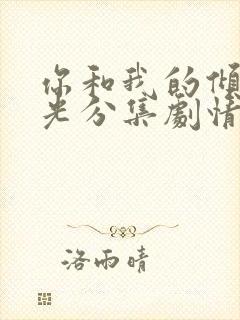 你和我的倾
光分集劇情
洛雨晴